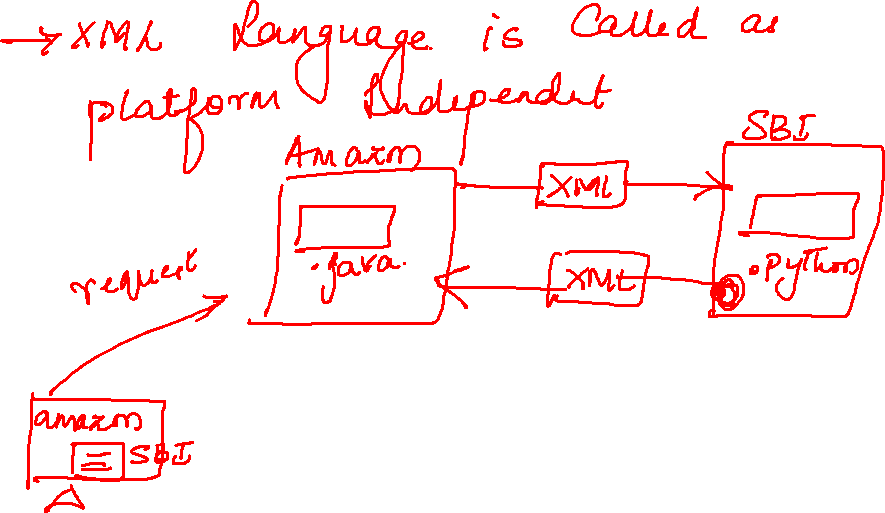 → XML Language is Called as
platform Independent
Amazon
SBI
XML
.java.
.python
XML
request
amazon
SBI